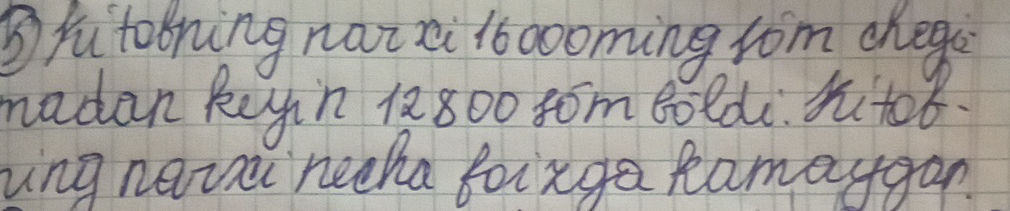 5) Kitobning narxi 16000ming som chegi-
madan keyin 12800 sōm bōldi. Kitob-
ning narxi necha foizga kamaygan.